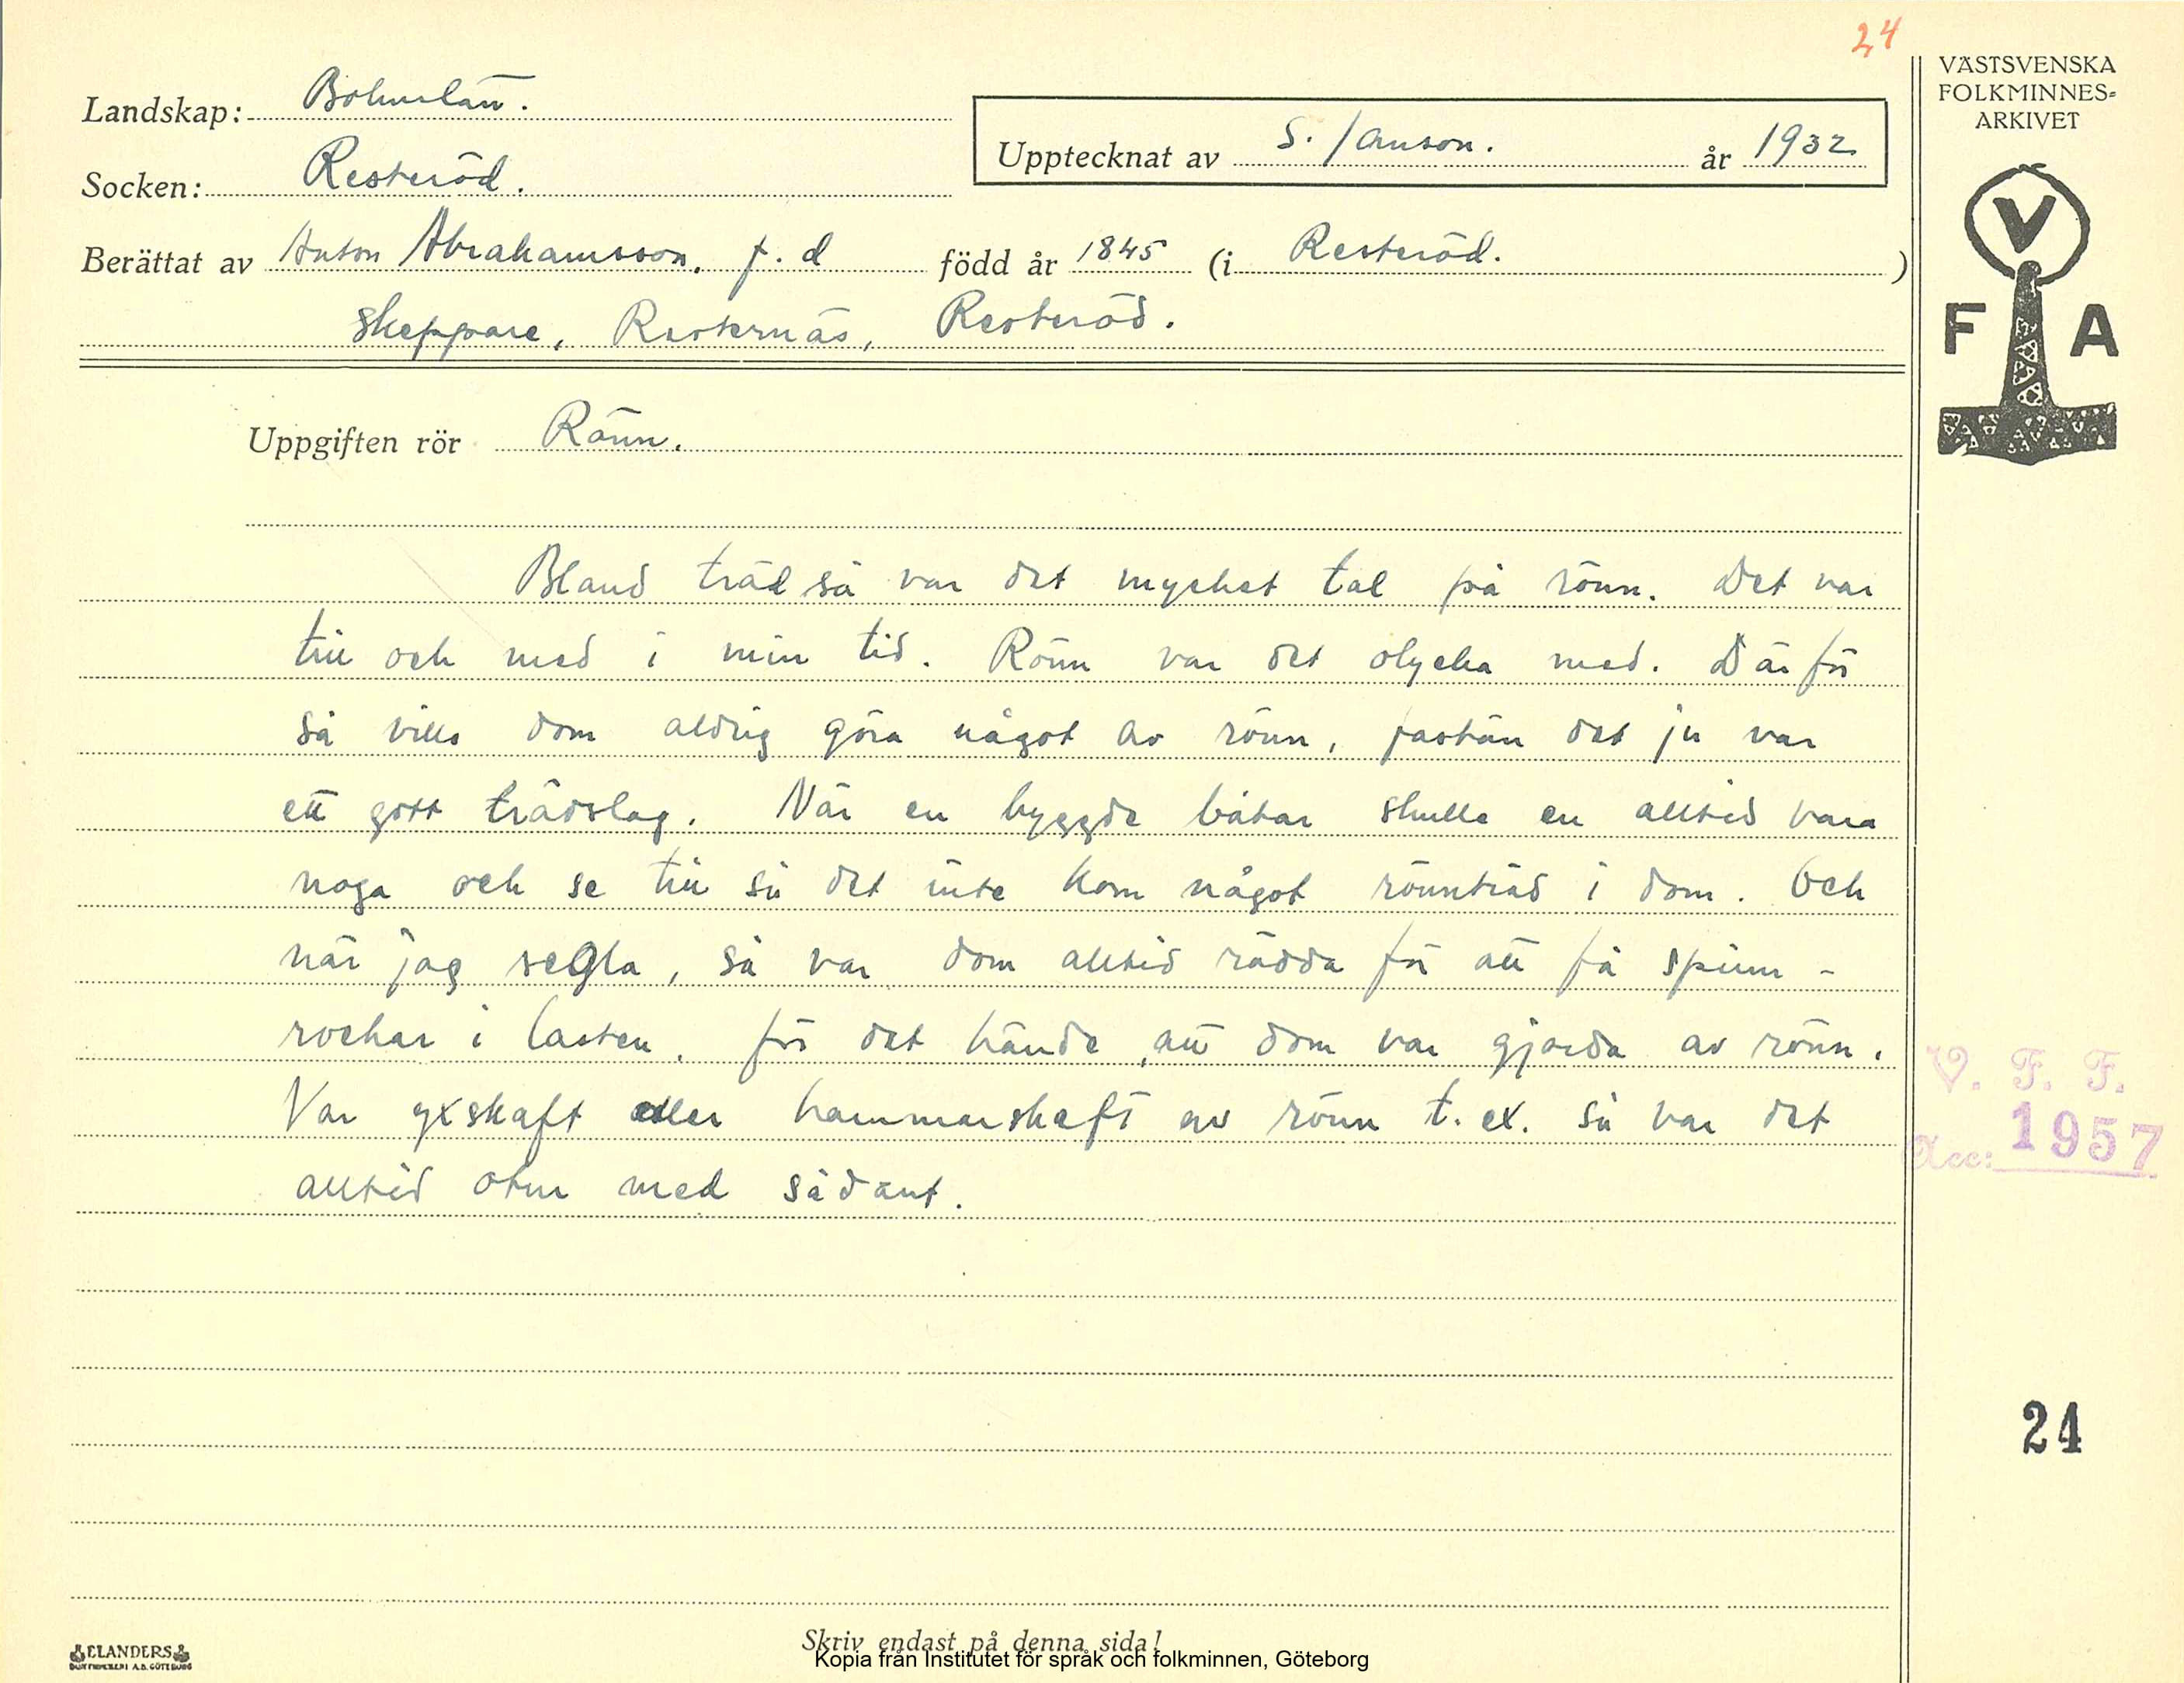 24
VÄSTSVENSKA
FOLKMINNES=
ARKIVET
Landskap: Bohuslän.
Upptecknat av S. Janson. år 1932
Socken: Resteröd.
Berättat av Anton Abrahamsson. f. d född år 1845 (i Resteröd. )
skeppare, Resternäs, Resteröd.
V
F A
Uppgiften rör Rönn.
Bland träd så var det mycket tal på rönn. Det var
till och med i min tid. Rönn var det olycka med. Därför
så ville dom aldrig göra något av rönn, fastän det ju var
ett gott trädslag. När en byggde båtar skulle en alltid vara
noga och se till så det inte kom något rönnträd i dom. Och
när jag segla, så var dom alltid rädda för att få spinn-
rockar i lasten, för det hände, att dom var gjorda av rönn.
Var yxskaft eller hammarskaft av rönn t. ex. så var det
alltid otur med sådant.
V. F. F.
Acc: 1957
24
ELANDERS
BOKTRYCKERI A.B. GÖTEBORG
Skriv endast på denna sida!
Kopia från Institutet för språk och folkminnen, Göteborg